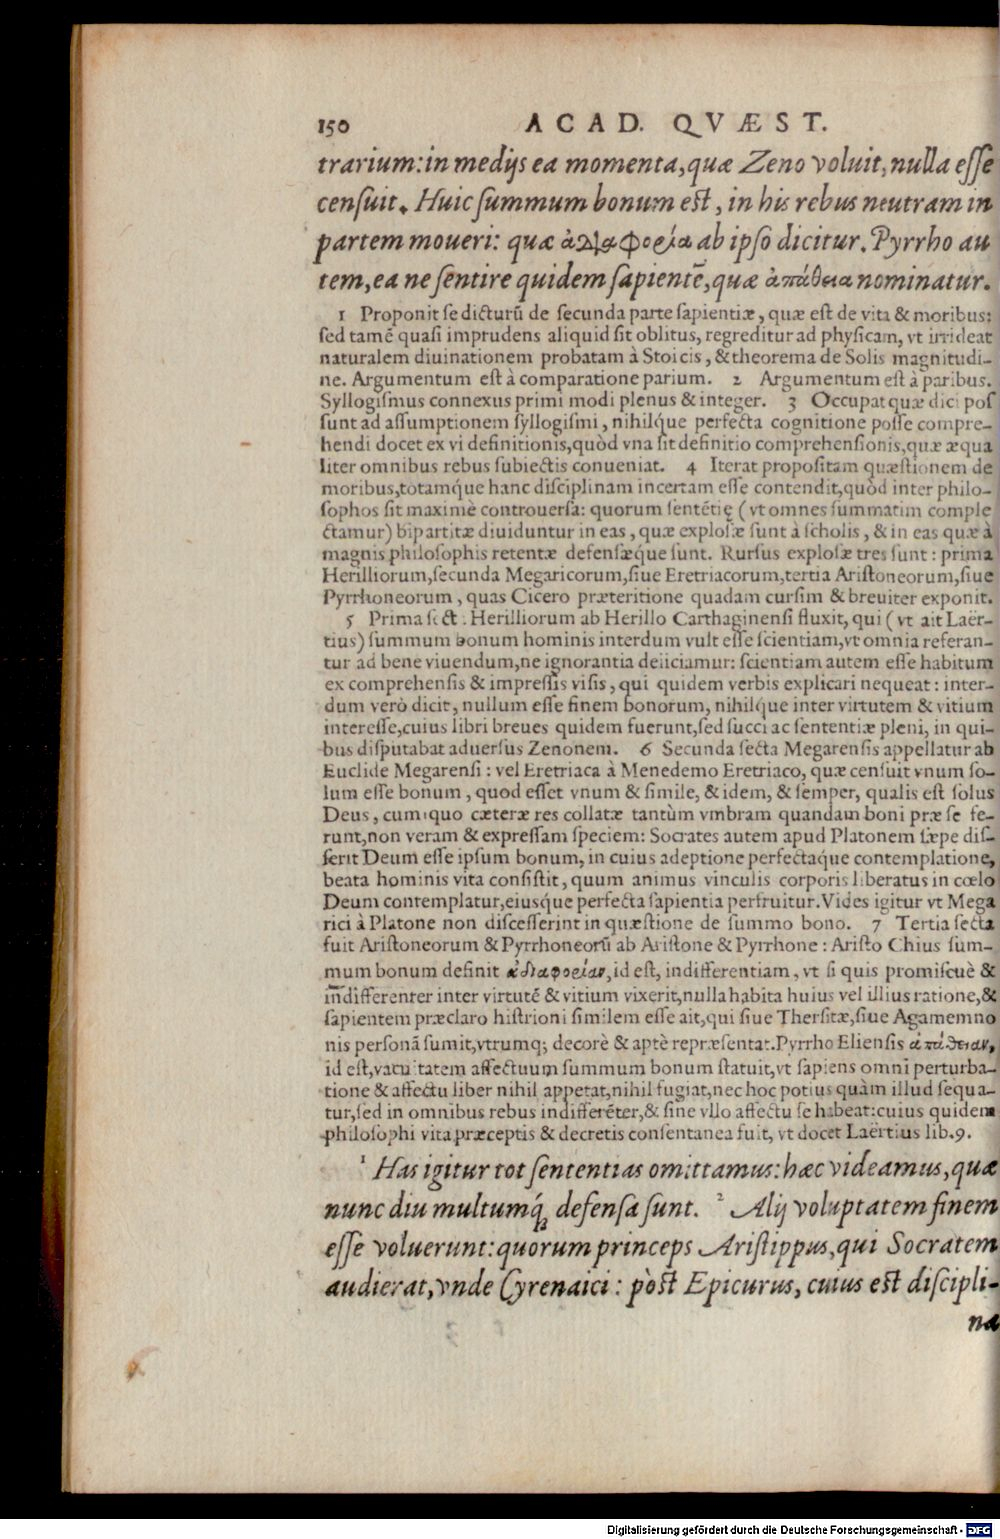 150 ACAD. QVÆST.
trarium: in medijs ea momenta, quæ Zeno voluit, nulla esse
censuit. Huic summum bonum est, in his rebus neutram in
partem moueri: quæ ἀδιαφορία ab ipso dicitur. Pyrrho au
tem, ea ne sentire quidem sapientē, quæ ἀπάθεια nominatur.
1 Proponit se dicturū de secunda parte sapientiæ, quæ est de vita & moribus:
sed tamē quasi imprudens aliquid sit oblitus, regreditur ad physicam, vt irrideat
naturalem diuinationem probatam à Stoicis, & theorema de Solis magnitudi-
ne. Argumentum est à comparatione parium. 2 Argumentum est à paribus.
Syllogismus connexus primi modi plenus & integer. 3 Occupat quæ dici pos
sunt ad assumptionem syllogismi, nihilq́ue perfecta cognitione posse compre-
hendi docet ex vi definitionis, quòd vna sit definitio comprehensionis, quæ æqua
liter omnibus rebus subiectis conueniat. 4 Iterat propositam quæstionem de
moribus, totamq́ue hanc disciplinam incertam esse contendit, quòd inter philo-
sophos sit maximè controuersa: quorum sentētię (vt omnes summatim comple
ctamur) bipartitæ diuiduntur in eas, quæ explosæ sunt à scholis, & in eas quæ à
magnis philosophis retentæ defensæque sunt. Rursus explosæ tres sunt: prima
Herilliorum, secunda Megaricorum, siue Eretriacorum, tertia Aristoneorum, siue
Pyrrhoneorum, quas Cicero præteritione quadam cursim & breuiter exponit.
5 Prima sect. Herilliorum ab Herillo Carthaginensi fluxit, qui (vt ait Laër-
tius) summum bonum hominis interdum vult esse scientiam, vt omnia referan-
tur ad bene viuendum, ne ignorantia deiiciamur: scientiam autem esse habitum
ex comprehensis & impressis visis, qui quidem verbis explicari nequeat: inter-
dum verò dicit, nullum esse finem bonorum, nihilq́ue inter virtutem & vitium
interesse, cuius libri breues quidem fuerunt, sed succi ac sententiæ pleni, in qui-
bus disputabat aduersus Zenonem. 6 Secunda secta Megarensis appellatur ab
Euclide Megarensi: vel Eretriaca à Menedemo Eretriaco, quæ censuit vnum so-
lum esse bonum, quod esset vnum & simile, & idem, & semper, qualis est solus
Deus, cum quo cæteræ res collatæ tantùm vmbram quandam boni præ se fe-
runt, non veram & expressam speciem: Socrates autem apud Platonem sæpe dis-
serit Deum esse ipsum bonum, in cuius adeptione perfectaq́ue contemplatione,
beata hominis vita consistit, quum animus vinculis corporis liberatus in cœlo
Deum contemplatur, eiusque perfecta sapientia perfruitur. Vides igitur vt Mega
rici à Platone non discesserint in quæstione de summo bono. 7 Tertia secta
fuit Aristoneorum & Pyrrhoneorū ab Aristone & Pyrrhone: Aristo Chius sum-
mum bonum definit ἀδιαφορίαν, id est, indifferentiam, vt si quis promiscuè &
indifferenter inter virtutē & vitium vixerit, nulla habita huius vel illius ratione, &
sapientem præclaro histrioni similem esse ait, qui siue Thersitæ, siue Agamemno
nis personā sumit, vtrumq; decorè & aptè repræsentat. Pyrrho Eliensis ἀπάθειαν,
id est, vacuitatem affectuum summum bonum statuit, vt sapiens omni perturba-
tione & affectu liber nihil appetat, nihil fugiat, nec hoc potius quàm illud sequa-
tur, sed in omnibus rebus indifferēter, & sine vllo affectu se habeat: cuius quidem
philosophi vita præceptis & decretis consentanea fuit, vt docet Laërtius lib. 9.
1 Has igitur tot sententias omittamus: hæc videamus, quæ
nunc diu multumq́; defensa sunt. 2 Alij voluptatem finem
esse voluerunt: quorum princeps Aristippus, qui Socratem
audierat, vnde Cyrenaici: pòst Epicurus, cuius est discipli-
na
Digitalisierung gefördert durch die Deutsche Forschungsgemeinschaft - DFG